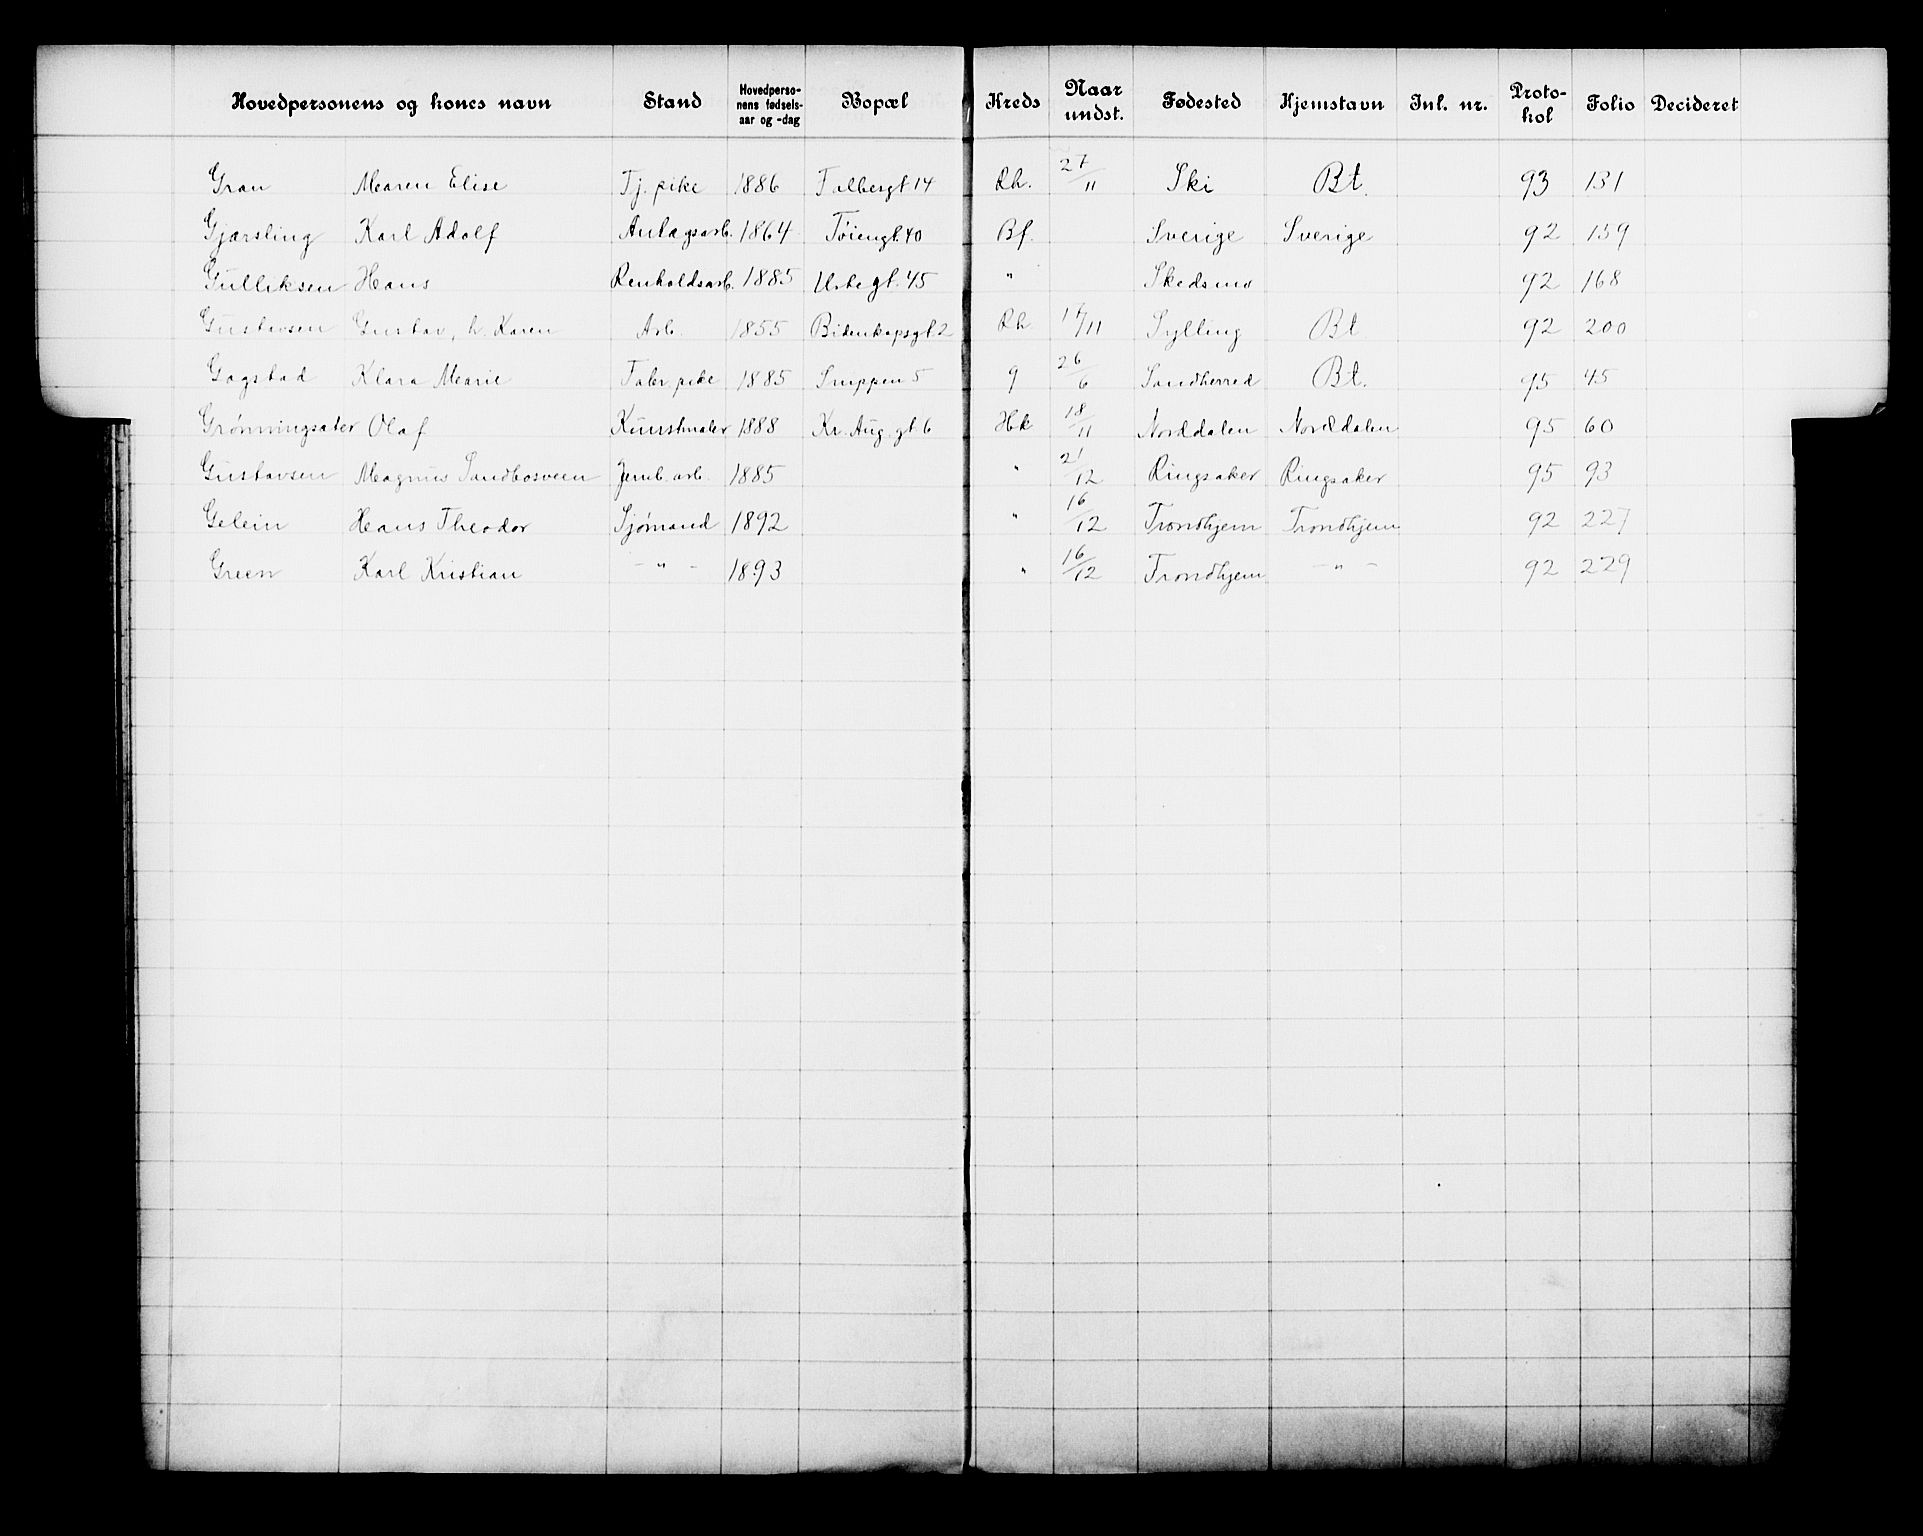 Hovedpersonens og kones navn Stand Hovedperso-nens fødsels-aar og -dag Bopæl Kreds Naar undst. Fødested Hjemstavn Inl. nr. Proto-kol Folio Decideret
Gran Maren Elise Tj. pike 1886 Falbergt 14 Rh. 27/11 Ski Bt. 93 131
Gjærsling Karl Adolf Anlægsarb. 1864 Tøiengt. 40 Bf. Sverige Sverige 92 159
Gulliksen Hans Renholdsarb. 1885 Urtegt. 45 " Skedsmo 92 168
Gustavsen Gustav, h. Karen Arb. 1855 Bidenkapsgt. 2 Rh. 17/11 Sylling Bt 92 200
Gogstad Klara Marie Fabr pike 1885 Snippen 5 9 26/6 Sandherred Bt. 95 45
Grønningsæter Olaf Kunstmaler 1888 Kr. Aug. gt 6 Hk 18/11 Norddalen Norddalen 95 60
Gustavsen Magnus Sandbosveen Jernb. arb. 1885 " 21/12 Ringsaker Ringsaker 95 93
Gelein Hans Theodor Sjømand 1892 " 16/12 Trondhjem Trondhjem 92 227
Green Karl Kristian - " - 1893 " 16/12 Trondhjem - " - 92 229